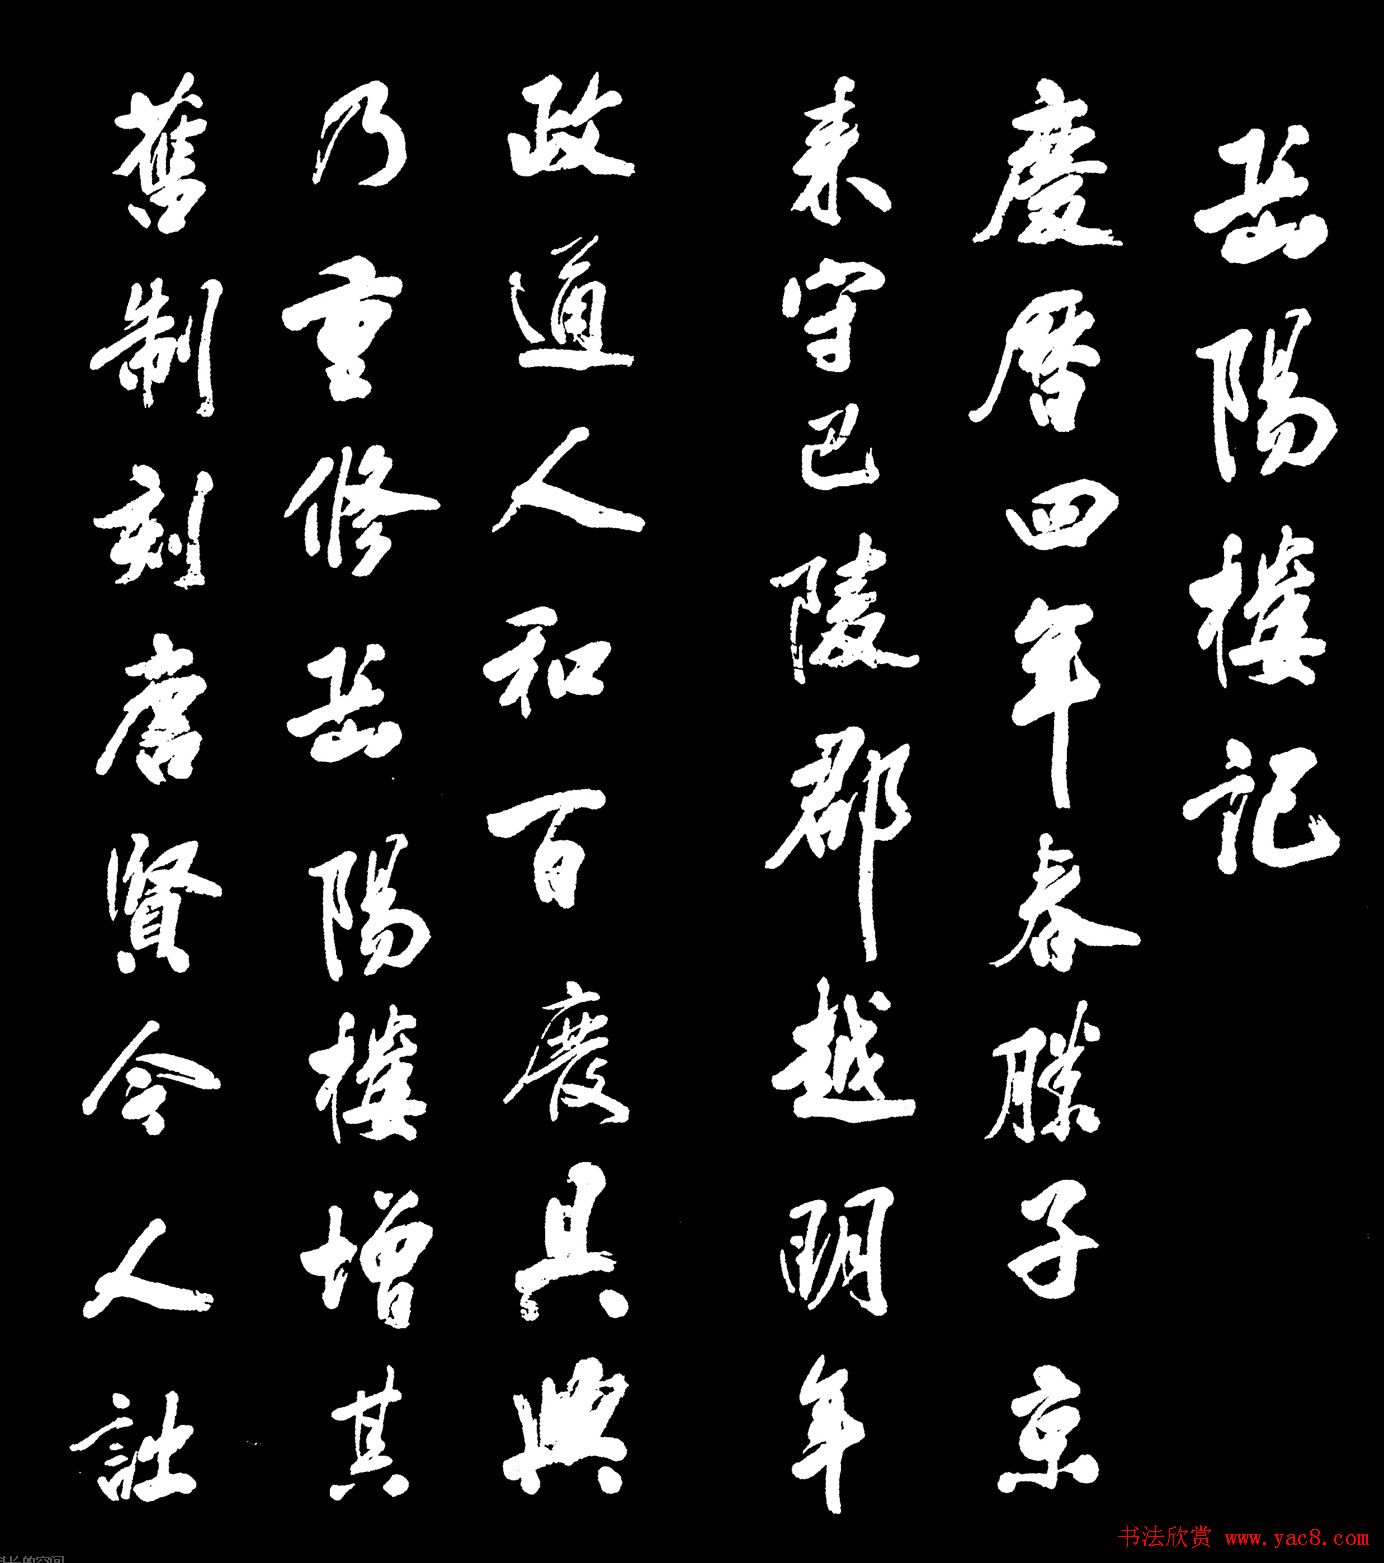 岳陽樓記
慶曆四年春滕子京
来守巴陵郡越明年
政通人和百廢具興
乃重修岳陽樓增其
舊制刻唐賢今人詩
书法欣赏 www.yac8.com